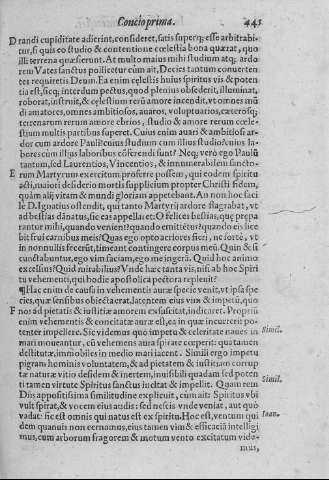 Concio prima. 443
D randi cupiditate adierint, consideret, satis superq; esse arbitrabi-
tur, si quis eo studio & contentione cœlestia bona quærat, quo
illi terrena quæsierunt. At multo maius mihi studium atq; ardo
rem Vates sanctus pollicetur cùm ait, Decies tantum conuerten
tes requiretis Deum. Ea enim cęlestis huius spiritus vis & poten
tia est, sicq; interdum pectus, quod plenius obsederit, illuminat,
roborat, instruit, & cęlestium rerū amore incendit, vt omnes mū
di amatores, omnes ambitiosos, auaros, voluptuarios, cæterosq;
terrenarum rerum amore ebrios, studio & amore rerum cœle-
stium multis partibus superet. Cuius enim auari & ambitiosi ar-
dor cum ardore Pauli? cuius studium cum illius studio? cuius la-
bores cùm illius laboribus cōferendi sunt? Neq; verò ego Paulū
tantum, sed Laurentios, Vincentios, & innumerabilem sancto-
E rum Martyrum exercitum proferre possem, qui eodem spiritu
acti, maiori desiderio mortis supplicium propter Christi fidem,
quàm alij vitam & mundi gloriam appetebant. An non hoc faci
le D. Ignatius ostendit, qui tanto Martyrij ardore flagrabat, vt
ad bestias dānatus, sic eas appellaret: O felices bestias, quę præpa
rantur mihi, quando venient? quando emittētur? quando eis lice
bit frui carnibus meis? Quas ego opto acriores fieri, ne fortè, vt
in nonnullis fecerūt, timeant contingere corpus meū. Quin & si
cunctabuntur, ego vim faciam, ego me ingerā. Quid hoc animo
excelsius? Quid mirabilius? Vnde hæc tanta vis, nisi ab hoc Spiri
tu vehementi, qui hodie apostolica pectora repleuit?
¶ Hac enim de causa in vehementis auræ specie venit, vt ipsa spe
cies, quæ sensibus obiecta erat, latentem eius vim & impetū, quo
F nos ad pietatis & iustitiæ amorem exsuscitat, indicaret. Proprii
enim vehementis & concitatæ auræ est, ea in quæ incurrerit po-
tenter impellere. Sic videmus quo impetu & celeritate naues in
mari moueantur, cū vehemens aura spirare cœperit: qua tamen
destitutæ, immobiles in medio mari iacent. Simili ergo impetu
pigram hominis voluntatem, & ad pietatem & iustitiam corrup
tæ naturæ vitio desidem & inertem, inuisibili quadam sed poten
ti tamen virtute Spiritus sanctus incitat & impellit. Quam rem
Dñs appositissima similitudine explicuit, cùm ait: Spiritus vbi
vult spirat, & vocem eius audis: sed nescis vnde veniat, aut quò
vadat: sic est omnis qui natus est ex spiritu. Hoc est, ventum qui
dem quanuis non cernamus, eius tamen vim & efficaciā intelligi
mus, cum arborum fragorem & motum vento excitatum vide-
mus,
Simil.
Simil.
Ioan.